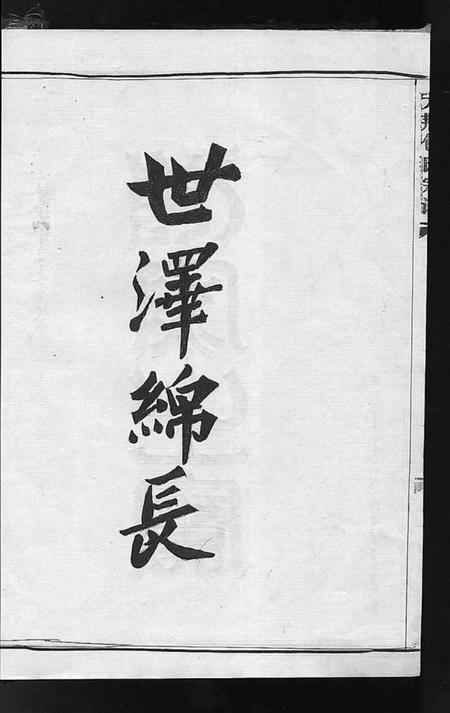 世澤綿長